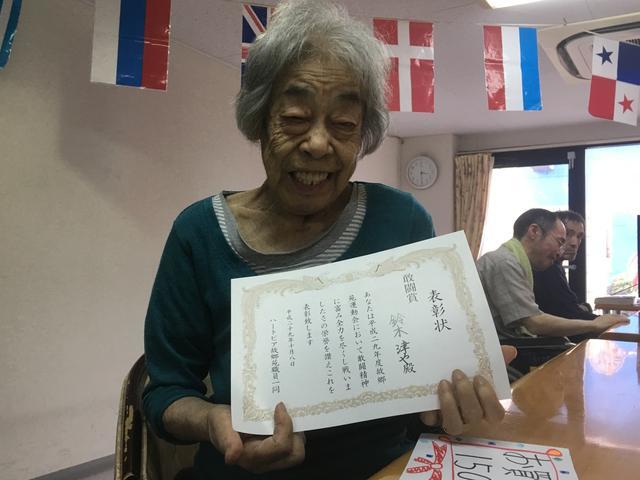 表彰状
敢闘賞
鈴木津や殿
あなたは平成二九年度故郷
苑運動会において敢闘精神
に富み全力を尽くし戦いま
したこの栄誉を讃えこれを
表彰致します
平成二十九年十月八日
ハートピア故郷苑職員一同
お買
150